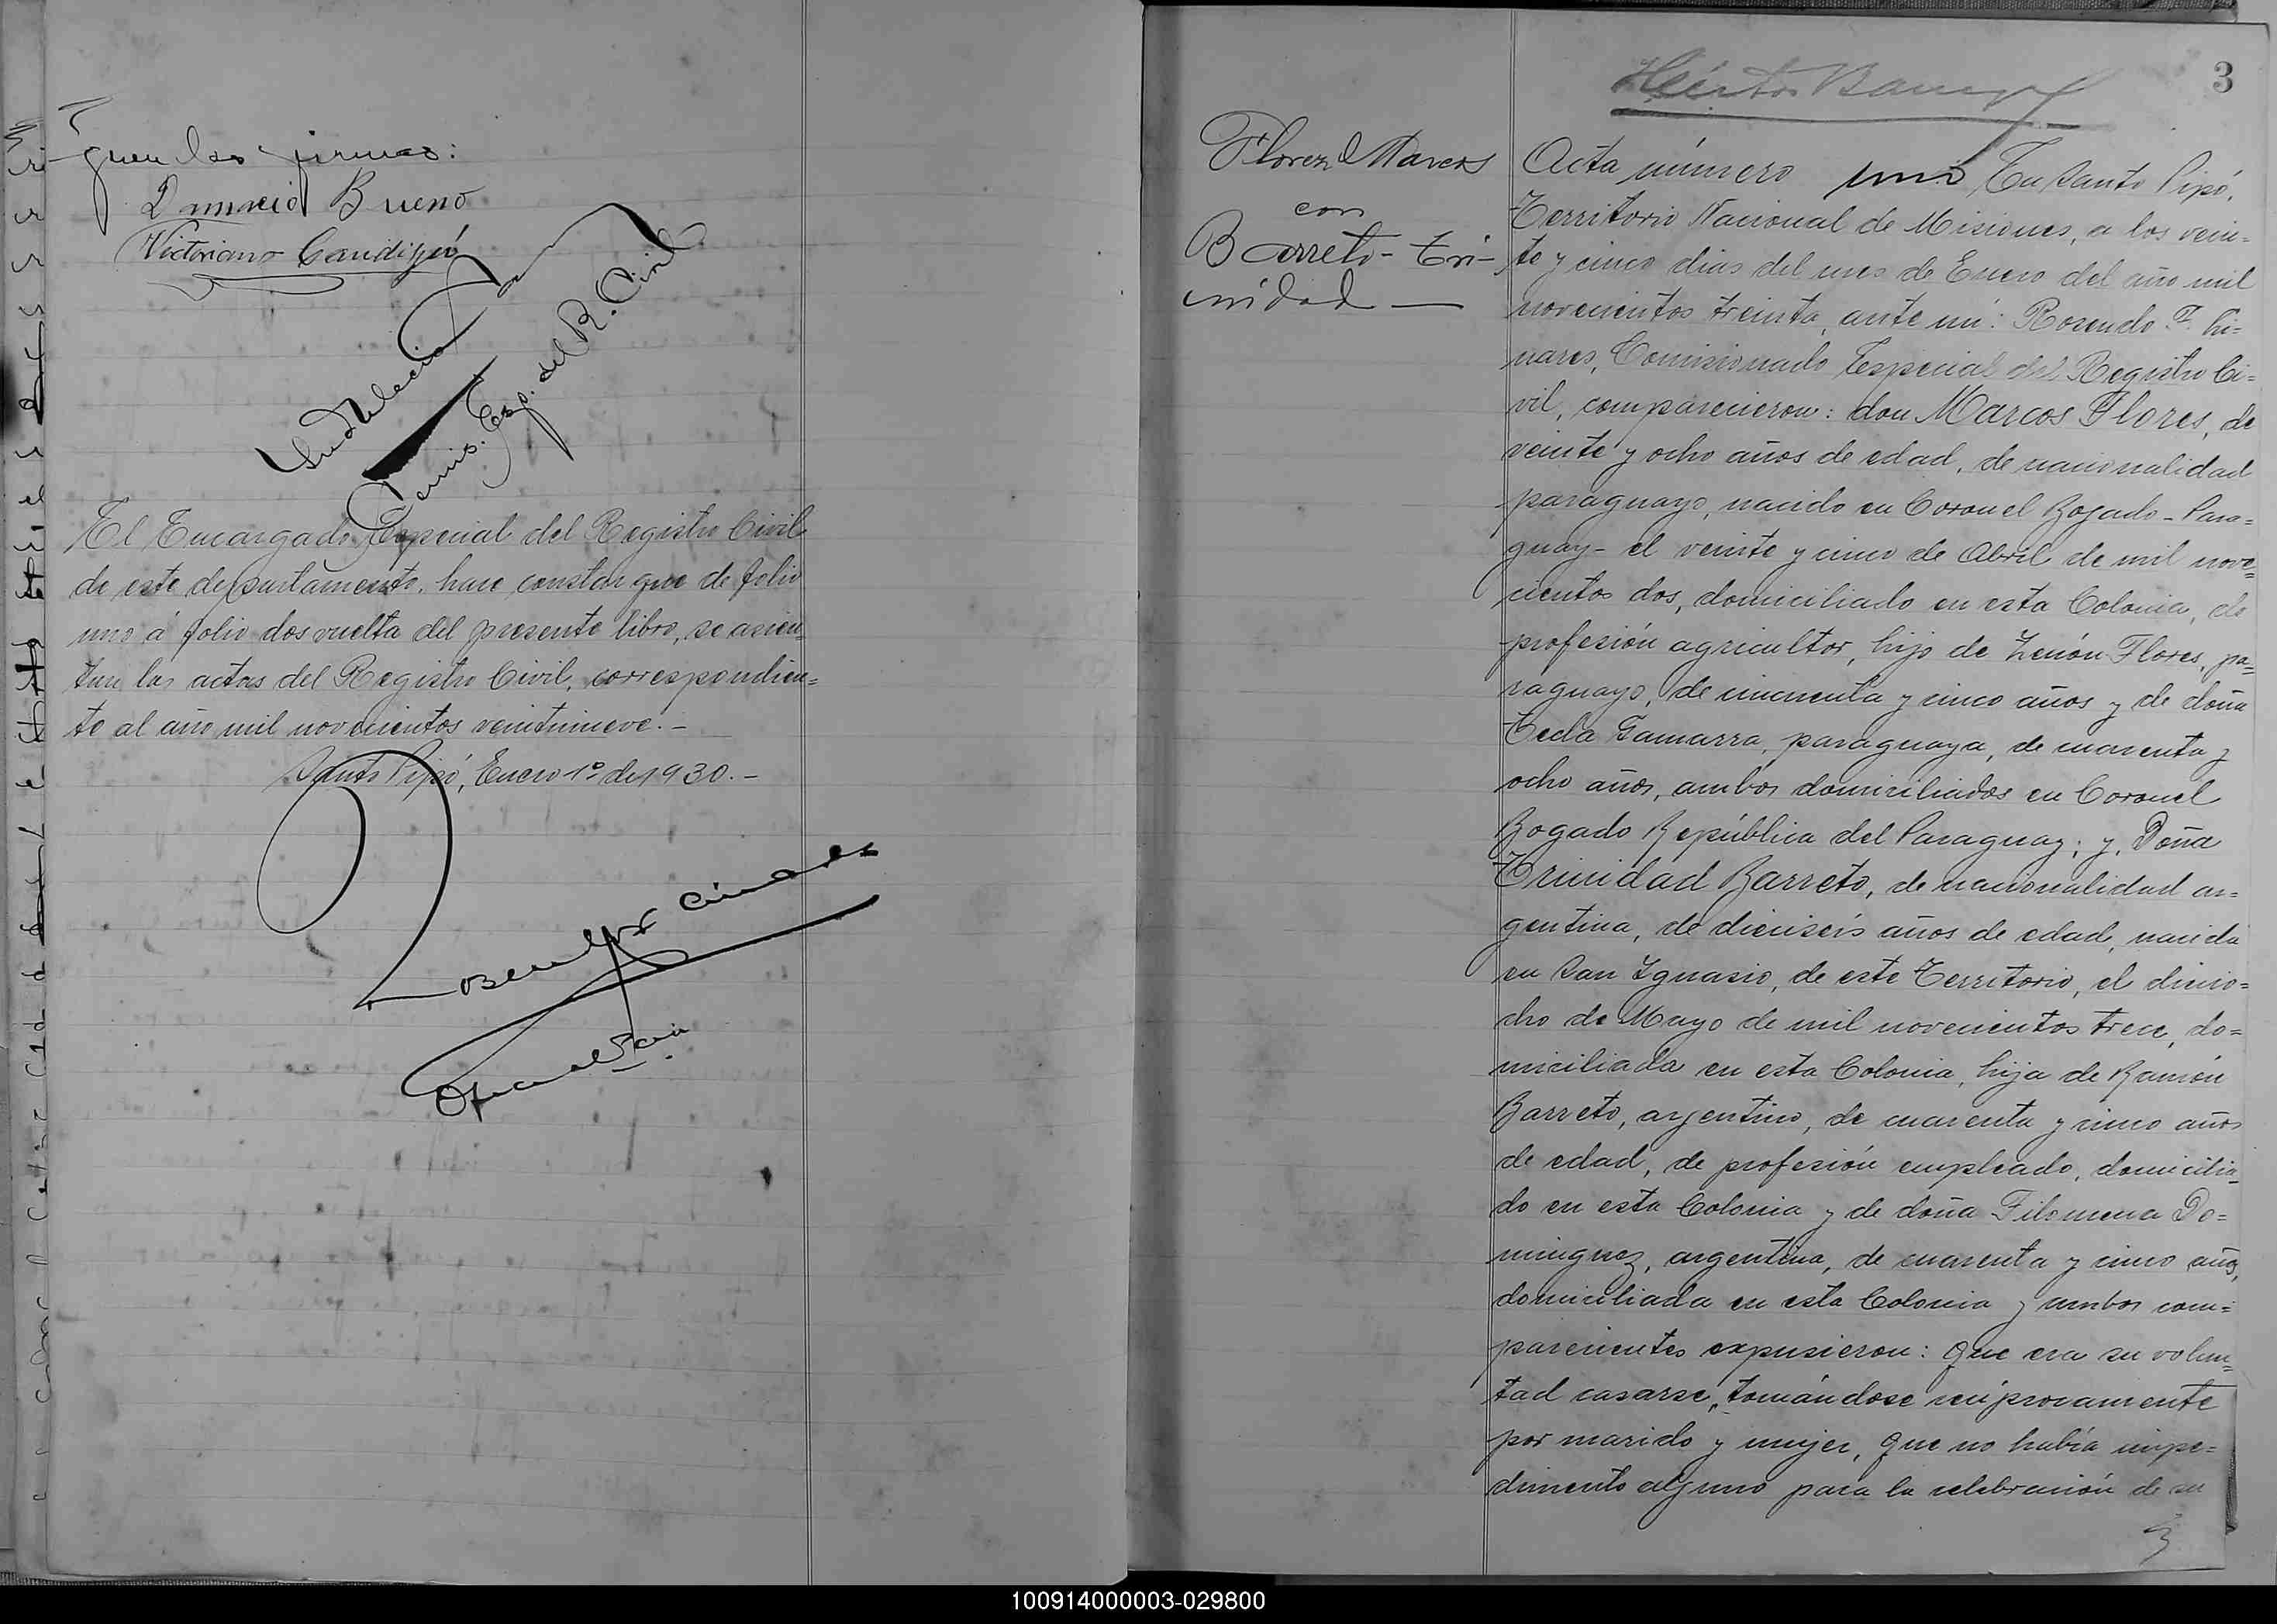 guen las firmas:
Damacio Bueno
Victoriano Candipió
Comis. Esp. del R. Civil
El Encargado Especial del Registro Civil
de este departamento, hace constar que de folio
uno á folio dos vuelta del presente libro, se asien=
tan las actas del Registro Civil, correspondien=
te al año mil novecientos veintinueve.-
Santo Pipó, Enero 1º de 1930.-
3
Florez Marcos
con
Barreto - Tri-
nidad —
Acta número uno En Santo Pipó,
Territorio Nacional de Misiones, a los vein=
te y cinco dias del mes de Enero del año mil
novecientos treinta, ante mi: Rosendo F. Li=
nares, Comisionado Especial del Registro Ci=
vil, comparecieron: don Marcos Flores, de
veinte y ocho años de edad, de nacionalidad
paraguayo, nacido en Coronel Bogado - Para=
guay - el veinte y cinco de Abril de mil nove=
cientos dos, domiciliado en esta Colonia, de
profesión agricultor, hijo de Zenón Flores, pa=
raguayo, de cincuenta y cinco años y de doña
Tecla Gamarra, paraguaya, de cuarenta y
ocho años, ambos domiciliados en Coronel
Bogado República del Paraguay; y, Doña
Trinidad Barreto, de nacionalidad ar=
gentina, de dieciseis años de edad, nacida
en San Ignasio, de este Territorio, el dicio=
cho de Mayo de mil novecientos trece, do=
miciliada en esta Colonia, hija de Ramón
Barreto, argentino, de cuarenta y cinco años
de edad, de profesión empleado, domicilia=
do en esta Colonia y de doña Filomena Do=
minguez, argentina, de cuarenta y cinco años,
domiciliada en esta Colonia y ambos com=
parecientes expusieron: Que era su volun=
tad casarse, tomándose reciprocamente
por marido y mujer, que no había impe=
dimento alguno para la celebración de su
100914000003-029800